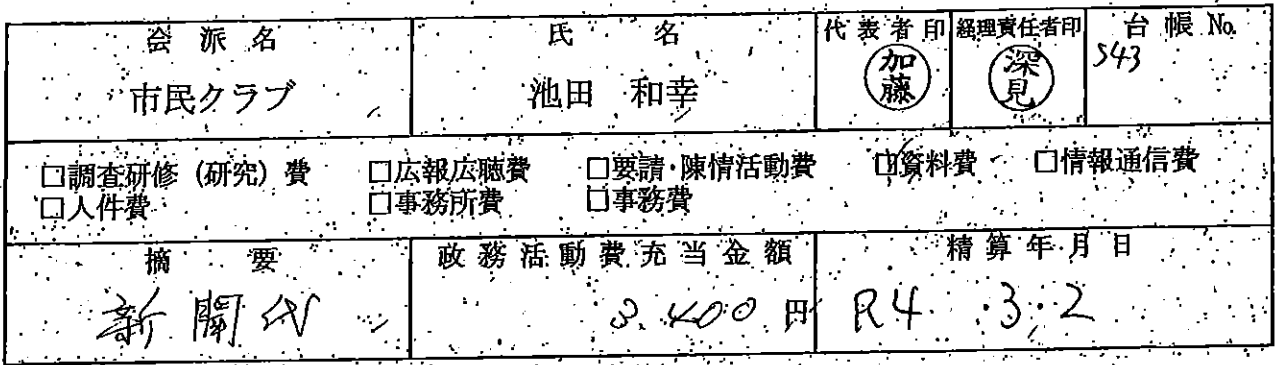 会派名 氏名 代表者印 経理責任者印 台帳No.
市民クラブ 池田 和幸 加藤 深見 543
□調査研修(研究)費 □広報広聴費 □要請・陳情活動費 ☑資料費 □情報通信費
□人件費 □事務所費 □事務費
摘要 政務活動費充当金額 精算年月日
新聞代 3,400円 R4.3.2